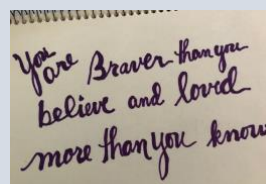 You are Braver than you
believe and loved
more than you know